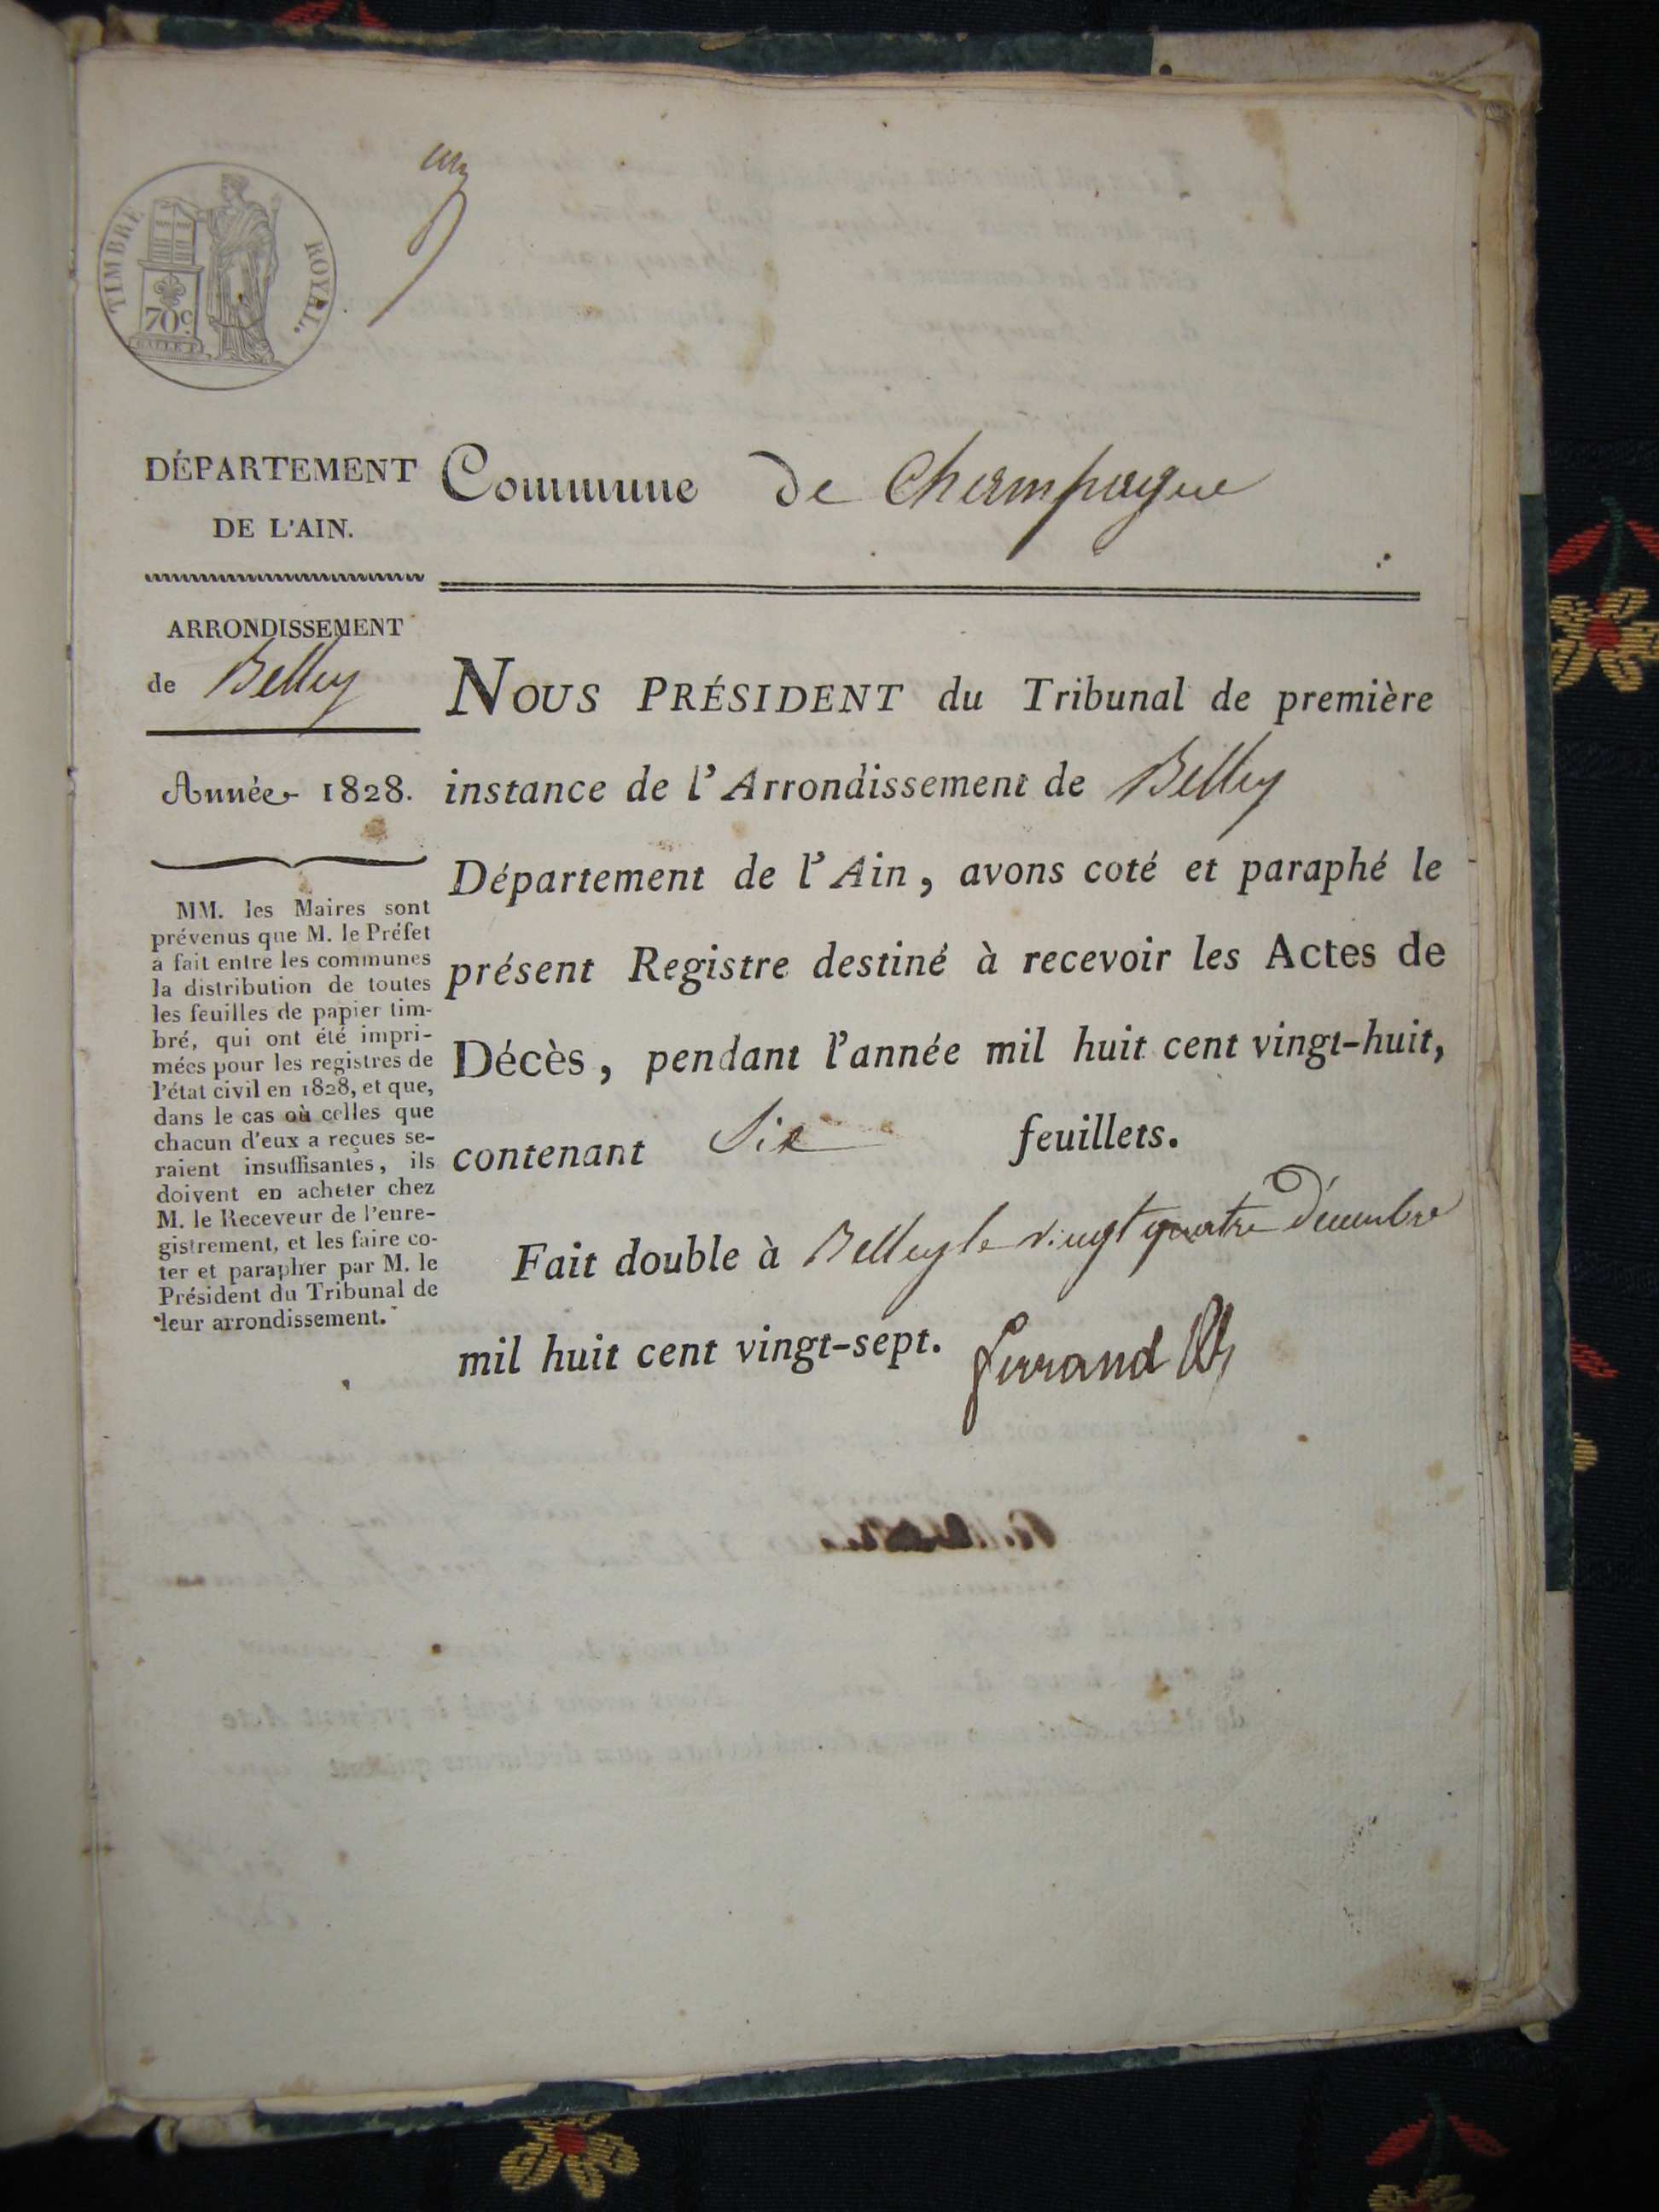 un
TIMBRE ROYAL.
70c
DÉPARTEMENT
DE L'AIN.
ARRONDISSEMENT
de Belley
Année 1828.
MM. les Maires sont
prévenus que M. le Préfet
a fait entre les communes
la distribution de toutes
les feuilles de papier tim-
bré, qui ont été impri-
mées pour les registres de
l'état civil en 1828, et que,
dans le cas où celles que
chacun d'eux a reçues se-
raient insuffisantes, ils
doivent en acheter chez
M. le Receveur de l'enre-
gistrement, et les faire co-
ter et parapher par M. le
Président du Tribunal de
leur arrondissement.
Commune de Champagne
NOUS PRÉSIDENT du Tribunal de première
instance de l'Arrondissement de Belley
Département de l'Ain, avons coté et paraphé le
présent Registre destiné à recevoir les Actes de
Décès, pendant l'année mil huit cent vingt-huit,
contenant Six feuillets.
Fait double à Belley le vingt quatre Décembre
mil huit cent vingt-sept. ferrand